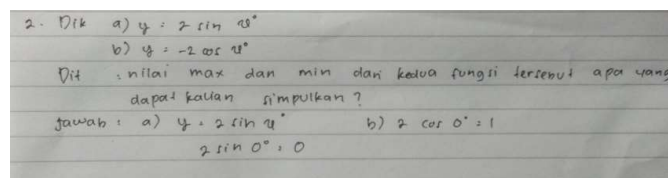 2. Dik a) y = 2 sin x°
b) y = -2 cos x°
Dit : nilai max dan min dari kedua fungsi tersebut apa yang
dapat kalian simpulkan ?
Jawab : a) y = 2 sin x° b) 2 cos 0° = 1
2 sin 0° = 0